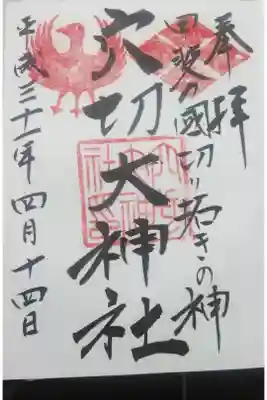 奉拝
甲斐の國切り拓きの神
穴切大神社
平成三十一年四月十四日